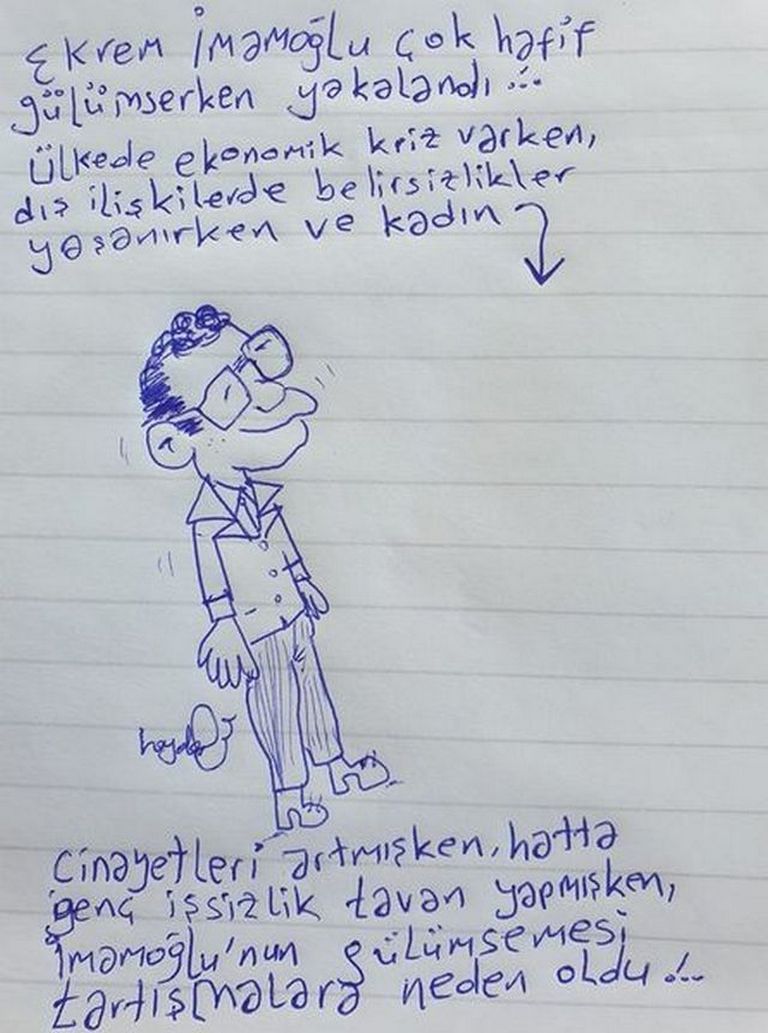 Ekrem İmamoğlu çok hafif
gülümserken yakalandı...
ülkede ekonomik kriz varken,
dış ilişkilerde belirsizlikler
yaşanırken ve kadın
cinayetleri artmışken, hatta
genç işsizlik tavan yapmışken,
İmamoğlu'nun gülümsemesi
tartışmalara neden oldu!..